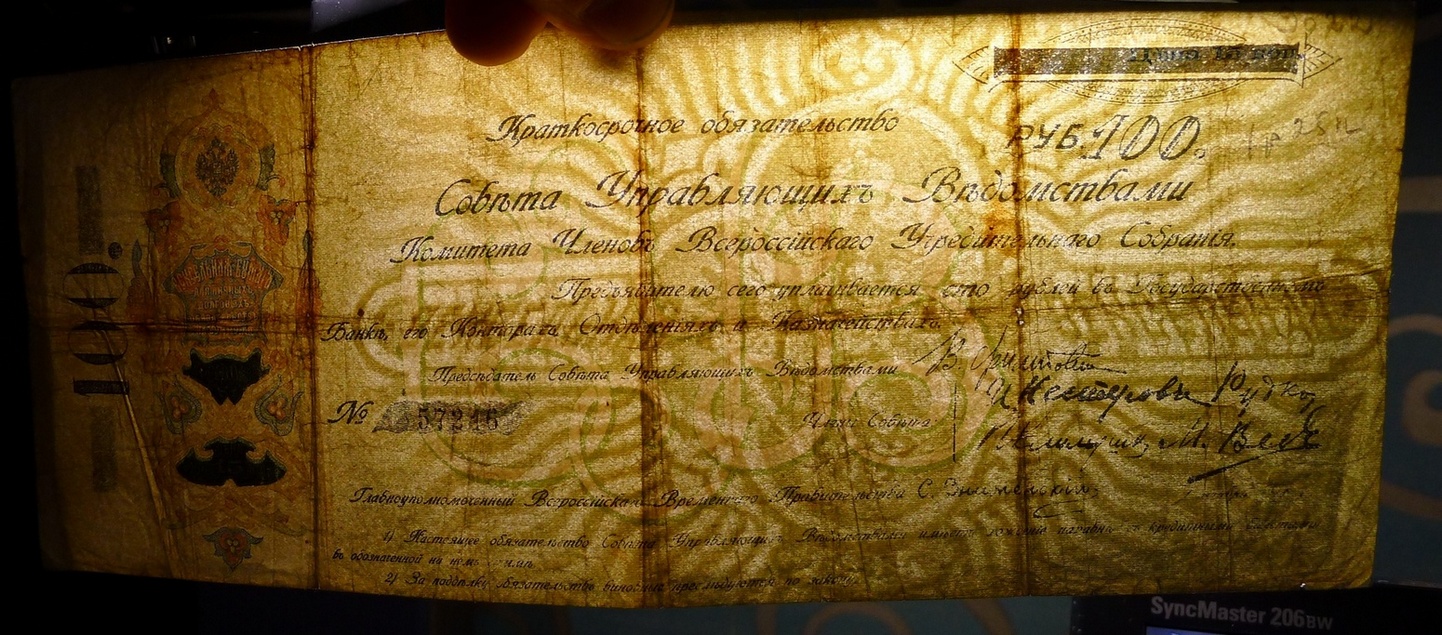 РУБ. 100.
Краткосрочное обязательство
Совѣта Управляющихъ Вѣдомствами
Комитета Членовъ Всероссійскаго Учредительнаго Собранія.
Предъявителю сего уплачивается сто рублей въ Государственномъ
Банкѣ, его Конторахъ, Отдѣленіяхъ и Казначействахъ.
Предсѣдатель Совѣта Управляющихъ Вѣдомствами
№ 57246
Члены Совѣта
И Нестеровъ Рудко
Главноуполномоченный Всероссійскаго Временнаго Правительства С. Знаменскій
1) Настоящее обязательство Совѣта Управляющихъ Вѣдомствами имѣетъ хожденіе наравнѣ съ кредитными билетами
въ обозначенной на немъ суммѣ.
2) За поддѣлку обязательства виновные преслѣдуются по закону.
100.
SyncMaster 206BW